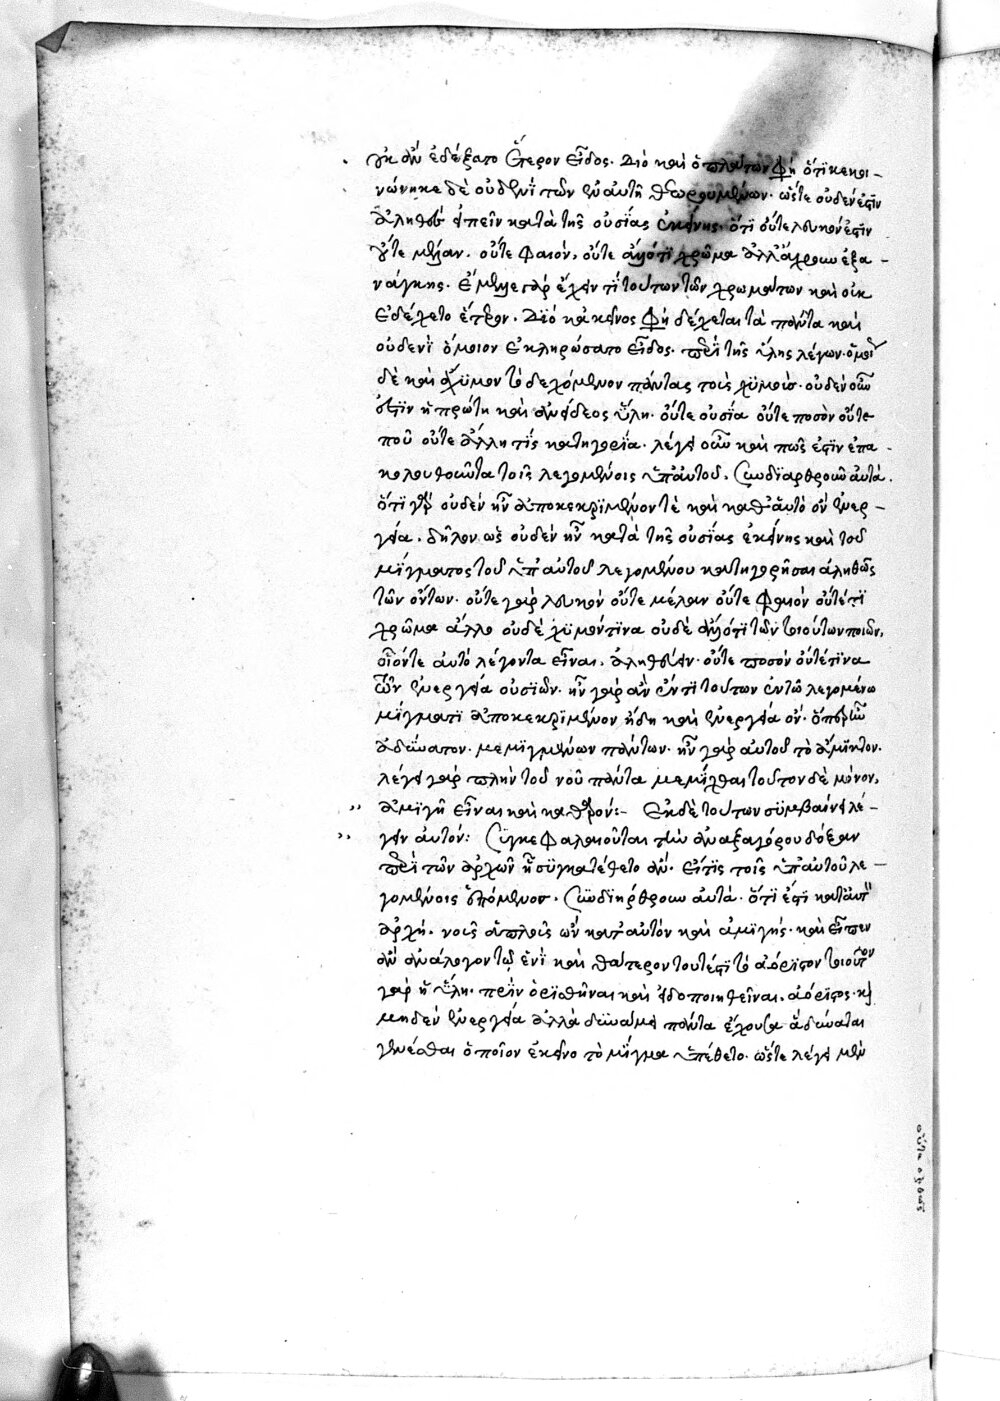 γκ ἂν ἐδέξατο ἕτερον εἶδος. Διὸ καὶ ὁ πλάτων φὴ ὅτι κεκοι-
νώνηκε δὲ οὐδενὶ τῶν ἐν αὐτῆ θεωρουμένων. ὥστε οὐδέν ἐστιν
ἀληθὲς εἰπεῖν κατὰ τῆς οὐσίας ἐκείνης. ὅτι οὔτε λευκόν ἐστιν
οὔτε μέλαν. οὔτε φαιὸν, οὔτε ἄλλό τι χρῶμα ἀλλ' ἄχρουν ἐξα-
νάγκης. ἔμελλε γὰρ ἔχειν τὶ τούτων τῶν χρωμάτων καὶ οὐκ
ἐδέχετο ἕτερον. Διὸ κἀκεῖνος φὴ δέχεται τὰ πάντα καὶ
οὐδενὶ ὅμοιον ἐκληρώσατο εἶδος. περὶ τῆς ὕλης λέγων. ὅμοι
δὲ καὶ ἄχυμον τὸ δεχόμενον πάντας τοὺς χυμούς. οὐδὲν οὖν
ἐστιν ἡ πρώτη καὶ ἀνείδεος ὕλη. οὔτε οὐσία οὔτε ποσὸν οὔτε
ποῦ οὔτε ἄλλη τίς κατηγορία. λέγει οὖν καὶ πῶς ἐστιν ἐπα-
κολουθοῦντα τοῖς λεγομένοις ὑπ' αὐτοῦ. συνδιαρθροῦν αὐτά.
ὅτι γὰρ οὐδὲν ἦν ἀποκεκριμένον τὲ καὶ καθ' αὑτὸ ὂν ἐνερ-
γεία. δῆλον ὡς οὐδὲν ἦν κατὰ τῆς οὐσίας ἐκείνης καὶ τοῦ
μίγματος τοῦ ὑπ' αὐτοῦ λεγομένου κατηγορῆσαι ἀληθῶς
τῶν ὄντων. οὔτε γὰρ λευκὸν οὔτε μέλαν οὔτε φαιὸν οὔτέ τι
χρῶμα ἄλλο οὐδὲ χυμόν τινα οὐδὲ ἄλλό τι τῶν τοιούτων ποιῶν,
οἷόν τε αὐτὸ λέγοντα εἶναι. ἀληθεύειν. οὔτε ποσὸν οὔτέ τινα
τῶν ἐνεργεία οὐσιῶν. ἦν γὰρ ἂν ἕν τι τούτων ἐν τῶ λεγομένω
μίγματι ἀποκεκριμένον ἤδη καὶ ἐνεργεία ὄν. ὅπερ ἦν
ἀδύνατον. μεμιγμένων πάντων. ἦν γὰρ αὐτοῦ τὸ ἀμίκτον.
λέγει γὰρ πλὴν τοῦ νοῦ πάντα μεμίχθαι τοῦτον δὲ μόνον,
ἀμιγῆ εἶναι καὶ καθαρόν:- Ἐκ δὲ τούτων συμβαίνει λέ-
γειν αὐτόν: Συγκεφαλαιοῦται τὴν ἀναξαγόρου δόξαν
περὶ τῶν ἀρχῶν ἣ συγκατέθετο ἂν. εἴ τις τοῖς ὑπ' αὐτοῦ λε-
γομένοις ἑπόμενος. συνδιήρθρουν αὐτά. ὅτι ἐστὶ κατ' αὐτὸν
ἀρχὴ. νοῦς ἁπλοῦς ὢν κατ' αὐτὸν καὶ ἀμιγής. καὶ εἶπεν
ἂν ἀνάλογον τῶ ἑνὶ καὶ θάτερον τουτέστι τὸ ἀόριστον τοιοῦτον
γὰρ ἡ ὕλη. πρὶν ὁρισθῆναι καὶ εἰδοποιηθεῖναι. ἀόριστος. καὶ
μηδὲν ἐνεργεία ἀλλὰ δυνάμει πάντα ἔχουσα ἃ δύναται
γενέσθαι ὁποῖον ἐκεῖνο τὸ μίγμα ὑπέθετο. ὥστε λέγει μὲν